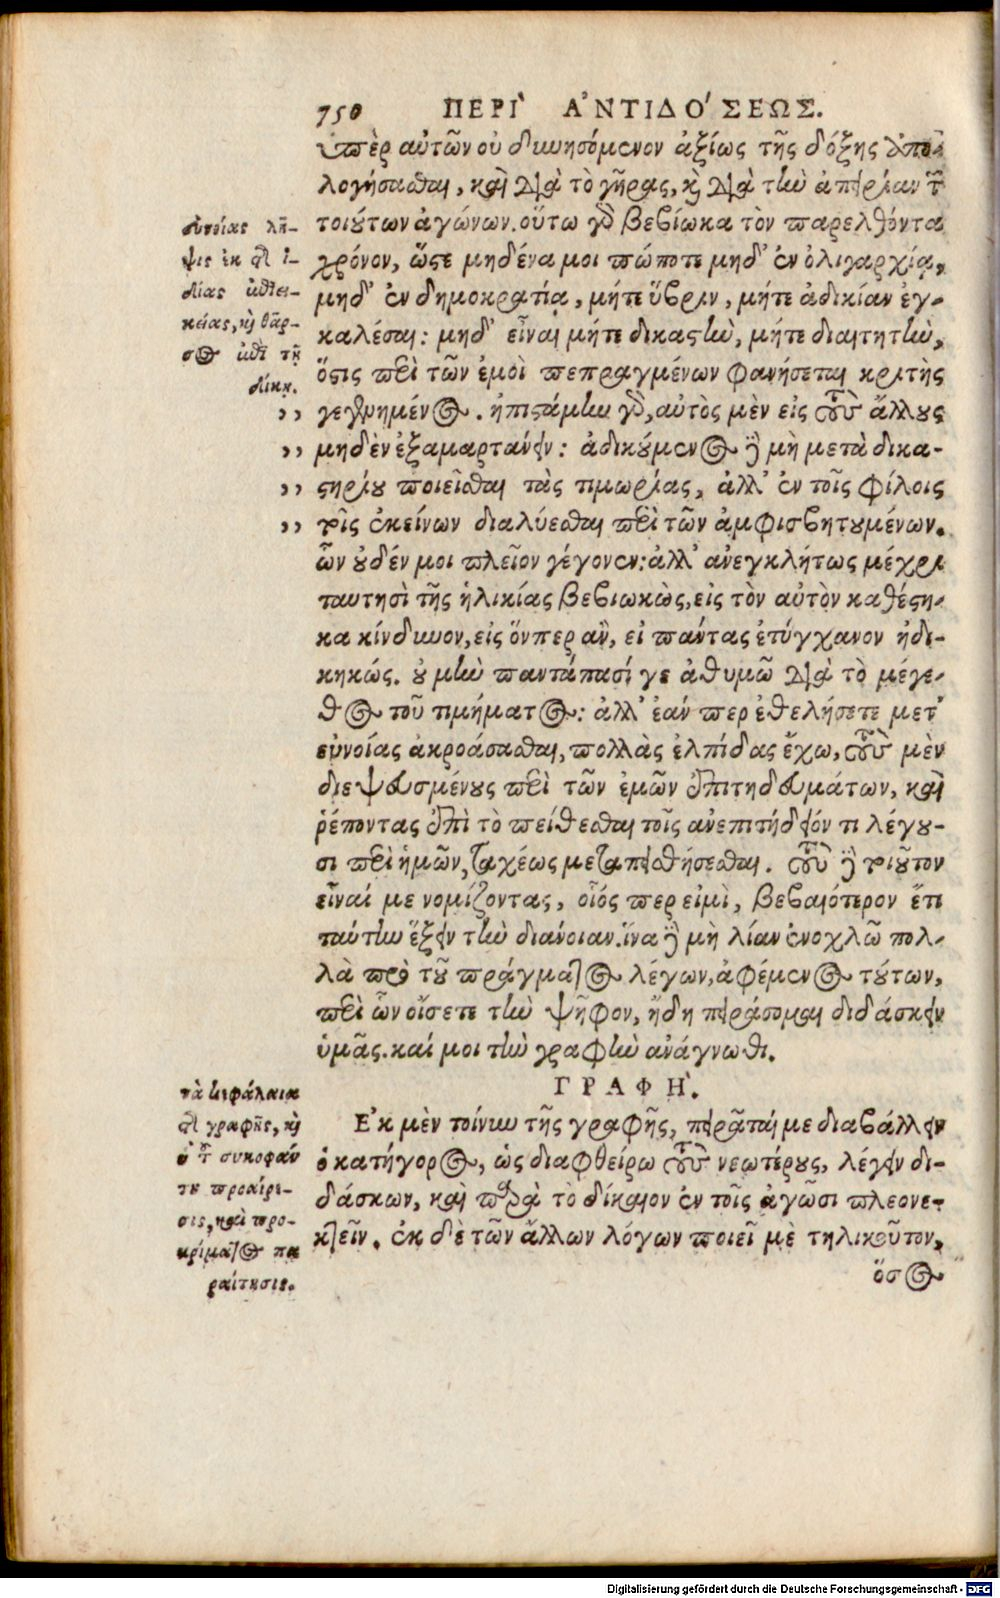 750 ΠΕΡΙ' Α'ΝΤΙΔΟ'ΣΕΩΣ.
ὑπὲρ αὐτῶν οὐ δυνησόμενον ἀξίως τῆς δόξης ἀπο-
λογήσασθαι, καὶ διὰ τὸ γῆρας, καὶ διὰ τὴν ἀπειρίαν τῶν
τοιούτων ἀγώνων. οὕτω γὰρ βεβίωκα τὸν παρελθόντα
χρόνον, ὥστε μηδένα μοι πώποτε μηδ' ἐν ὀλιγαρχίᾳ,
μηδ' ἐν δημοκρατίᾳ, μήτε ὕβριν, μήτε ἀδικίαν ἐγ-
καλέσαι: μηδ' εἶναι μήτε δικαστὴν, μήτε διαιτητὴν,
ὅστις περὶ τῶν ἐμοὶ πεπραγμένων φανήσεται κριτὴς
γεγενημένος. ἠπιστάμην γὰρ, αὐτὸς μὲν εἰς τοὺς ἄλλους
μηδὲν ἐξαμαρτάνειν: ἀδικούμενος δὲ μὴ μετὰ δικα-
στηρίου ποιεῖσθαι τὰς τιμωρίας, ἀλλ' ἐν τοῖς φίλοις
τοῖς ἐκείνων διαλύεσθαι περὶ τῶν ἀμφισβητουμένων.
ὧν οὐδέν μοι πλεῖον γέγονεν: ἀλλ' ἀνεγκλήτως μέχρι
ταυτησὶ τῆς ἡλικίας βεβιωκὼς, εἰς τὸν αὐτὸν καθέστη-
κα κίνδυνον, εἰς ὅνπερ ἂν, εἰ πάντας ἐτύγχανον ἠδι-
κηκώς. οὐ μὴν παντάπασί γε ἀθυμῶ διὰ τὸ μέγε-
θος τοῦ τιμήματος: ἀλλ' ἐάν περ ἐθελήσετε μετ'
εὐνοίας ἀκροάσασθαι, πολλὰς ἐλπίδας ἔχω, τοὺς μὲν
διεψευσμένους περὶ τῶν ἐμῶν ἐπιτηδευμάτων, καὶ
ῥέποντας ἐπὶ τὸ πείθεσθαι τοῖς ἀνεπιτήδειόν τι λέγου-
σι περὶ ἡμῶν, ταχέως μεταπεισθήσεσθαι. τοὺς δὲ τοιοῦτον
εἶναί με νομίζοντας, οἷός περ εἰμὶ, βεβαιότερον ἔτι
ταύτην ἕξειν τὴν διάνοιαν. ἵνα δὲ μὴ λίαν ἐνοχλῶ πολ-
λὰ πρὸ τοῦ πράγματος λέγων, ἀφέμενος τούτων,
περὶ ὧν οἴσετε τὴν ψῆφον, ἤδη πειράσομαι διδάσκειν
ὑμᾶς. καί μοι τὴν γραφὴν ἀνάγνωθι.
ΓΡΑΦΗ'.
Ἐκ μὲν τοίνυν τῆς γραφῆς, πειρᾶταί με διαβάλλειν
ὁ κατήγορος, ὡς διαφθείρω τοὺς νεωτέρους, λέγειν δι-
δάσκων, καὶ παρὰ τὸ δίκαιον ἐν τοῖς ἀγῶσι πλεονε-
κτεῖν. ἐκ δὲ τῶν ἄλλων λόγων ποιεῖ μὲ τηλικοῦτον,
ὅσος
εὐνοίας λῆ-
ψις ἐκ τῆς ἰ-
δίας ἐπιει-
κείας, καὶ θάρ-
σος ἐπὶ τῇ
δίκῃ.
,,
,,
,,
,,
τὰ κεφάλαια
τῆς γραφῆς, καὶ
ἡ τῶν συκοφάν
των προαίρε-
σις, καὶ προ-
κρίματος πα
ραίτησις.
Digitalisierung gefördert durch die Deutsche Forschungsgemeinschaft - DFG